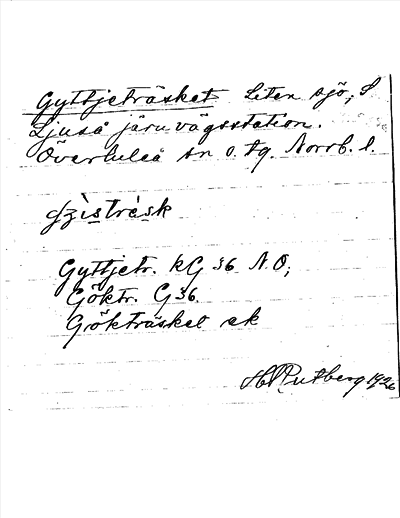 Gyttjeträsket Liten sjö; S
Ljuså järnvägsstation.
Överluleå sn o. tg. Norrb. l.
Gyttjetr. kG 36 N.O;
Göktr. G 36.
Gökträsket ek
H Rutberg 1926